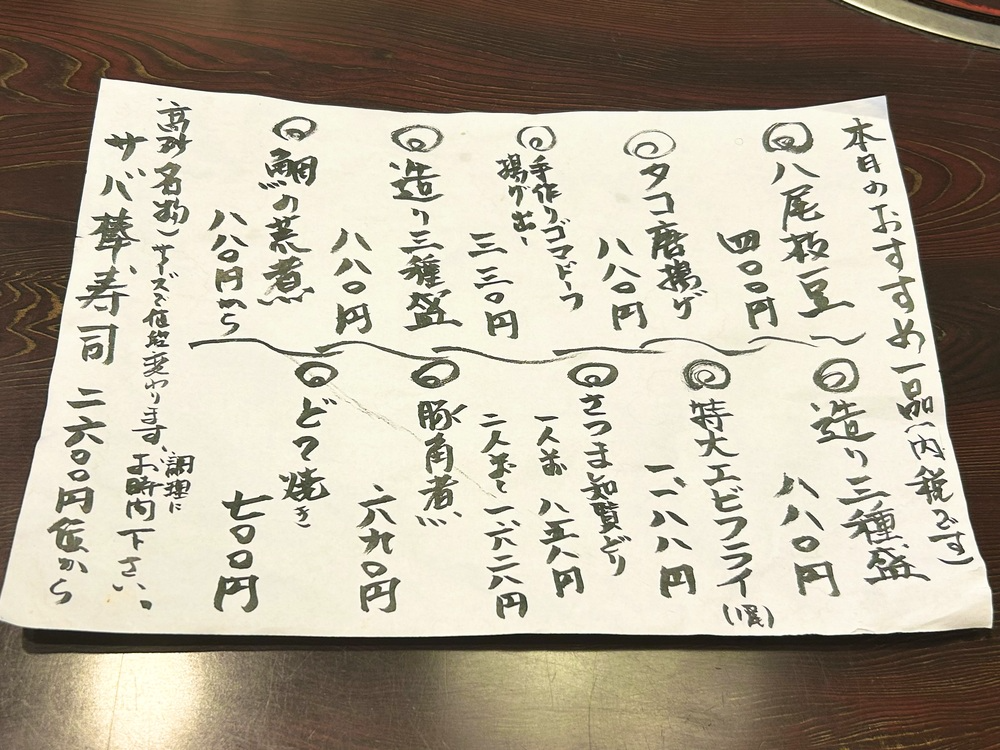 本日のおすすめ一品(内税です)
◎八尾枝豆
四〇〇円
◎タコ唐揚げ
八八〇円
◎手作りゴマドーフ
揚げ出し
三三〇円
◎造り三種盛
八八〇円
◎鯛の荒煮
八八〇円から
◎造り三種盛
八八〇円
◎特大エビフライ(一尾)
一、一八八円
◎さつま知覧どり
一人前 八五八円
二人前で 一、六二八円
◎豚角煮
六九〇円
◎どて焼き
七〇〇円
(高砂名物)サイズで値段変わります。調理に
お時間下さい。
サバ棒寿司 二六〇〇円位から